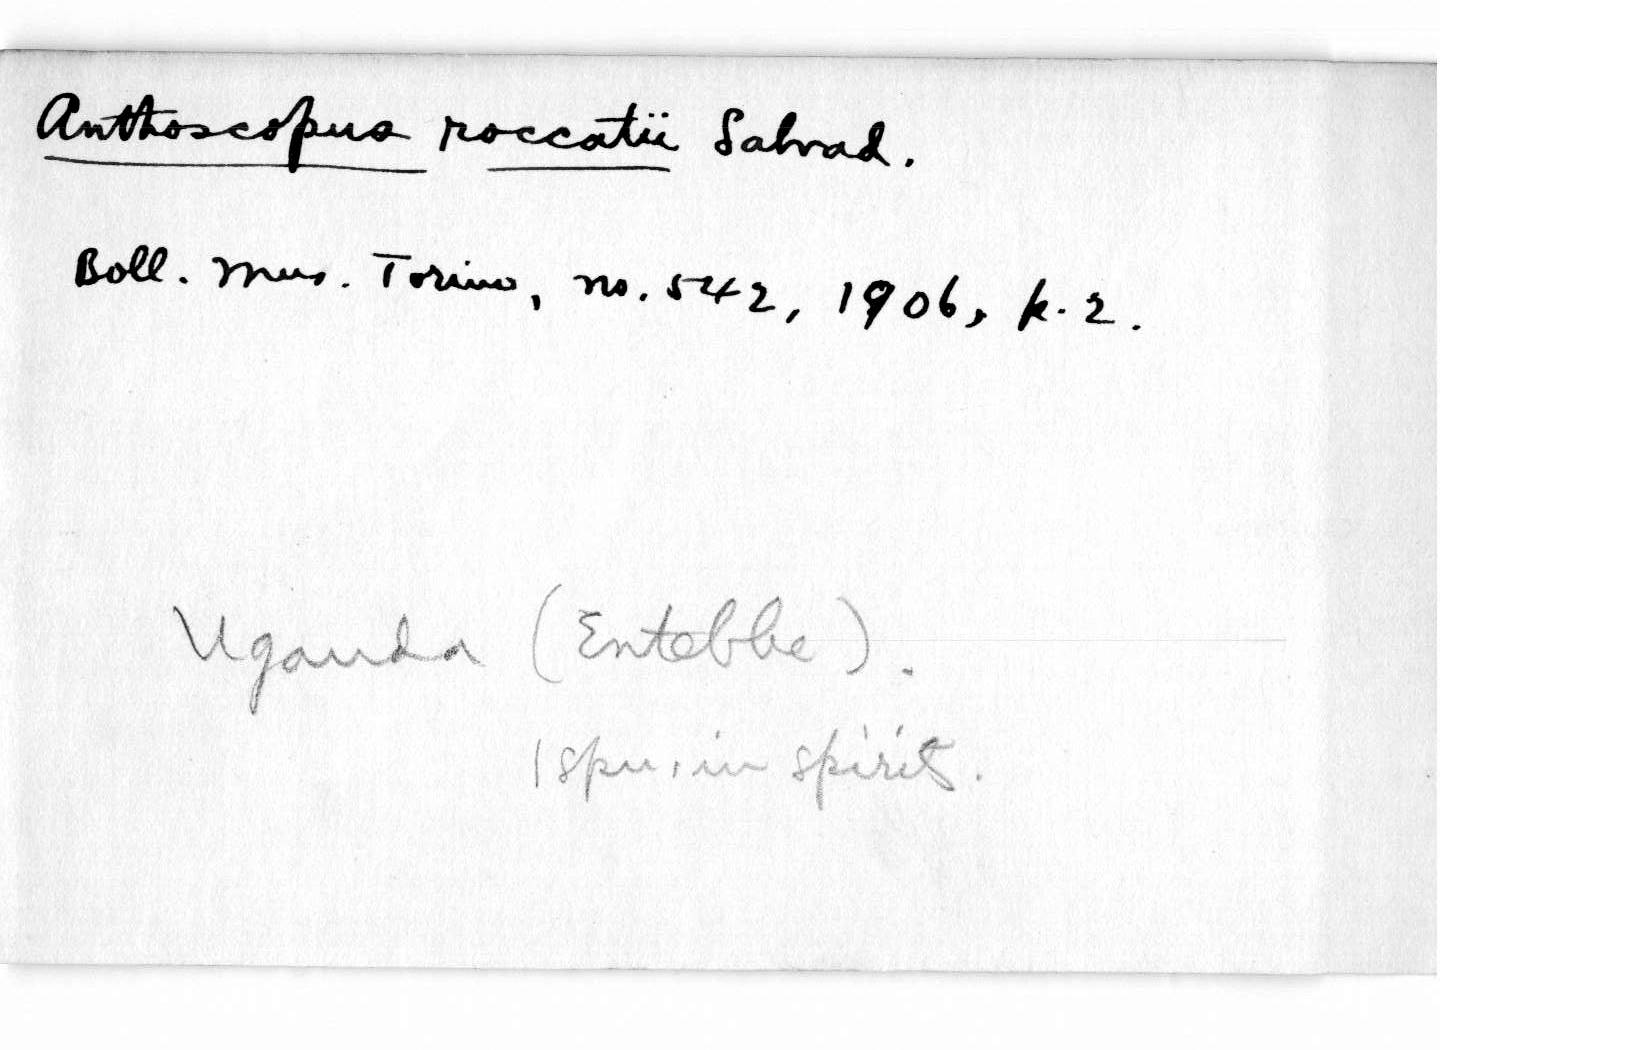 Anthoscopus roccatii Salvad.
Boll. Mus. Torino, no. 542, 1906, p. 2.
Uganda (Entebbe).
1 spn. in spirit.